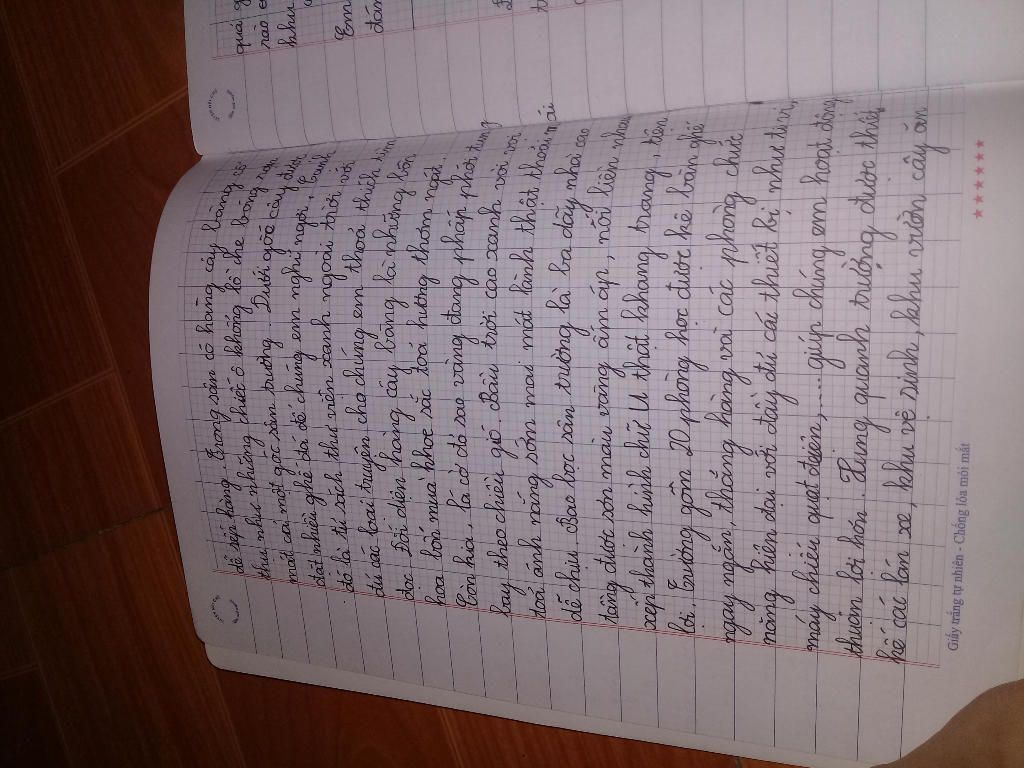 để xếp hàng. Trong sân có hàng cây bàng cổ
thụ như những chiếc ô khổng lồ che bóng râm
mát cả một góc sân trường. Dưới gốc cây được
đặt nhiều ghế đá để chúng em nghỉ ngơi,
đó là tủ sách thư viện xanh ngoài trời với
đủ các loại truyện cho chúng em thoải thích tìm
đọc. Đối diện hàng cây bàng là những bồn
hoa bốn mùa khoe sắc toả hương thơm ngát.
Còn kia, là cờ đỏ sao vàng đang phấp phới, tung
bay theo chiều gió. Bầu trời cao xanh vời vợi
toả ánh nắng sớm mai mát lành thật thoải mái
dễ chịu. Bao bọc sân trường là ba dãy nhà cao
tầng được sơn màu vàng ấm áp, nối liền nhau
xếp thành hình chữ U thật khang trang, tiện
lợi. Trường gồm 20 phòng học được kê bàn ghế
ngay ngắn, thẳng hàng và các phòng chức
năng hiện đại với đầy đủ cá thiết bị như ti vi,
máy chiếu quạt điện,....giúp chúng em hoạt động
thuận lợi hơn. Xung quanh trường được thiết
kế các lán xe, khu vệ sinh, khu vườn cây ăn
Giấy trắng tự nhiên - Chống lóa mỏi mắt
quả
rào e
khu
Em